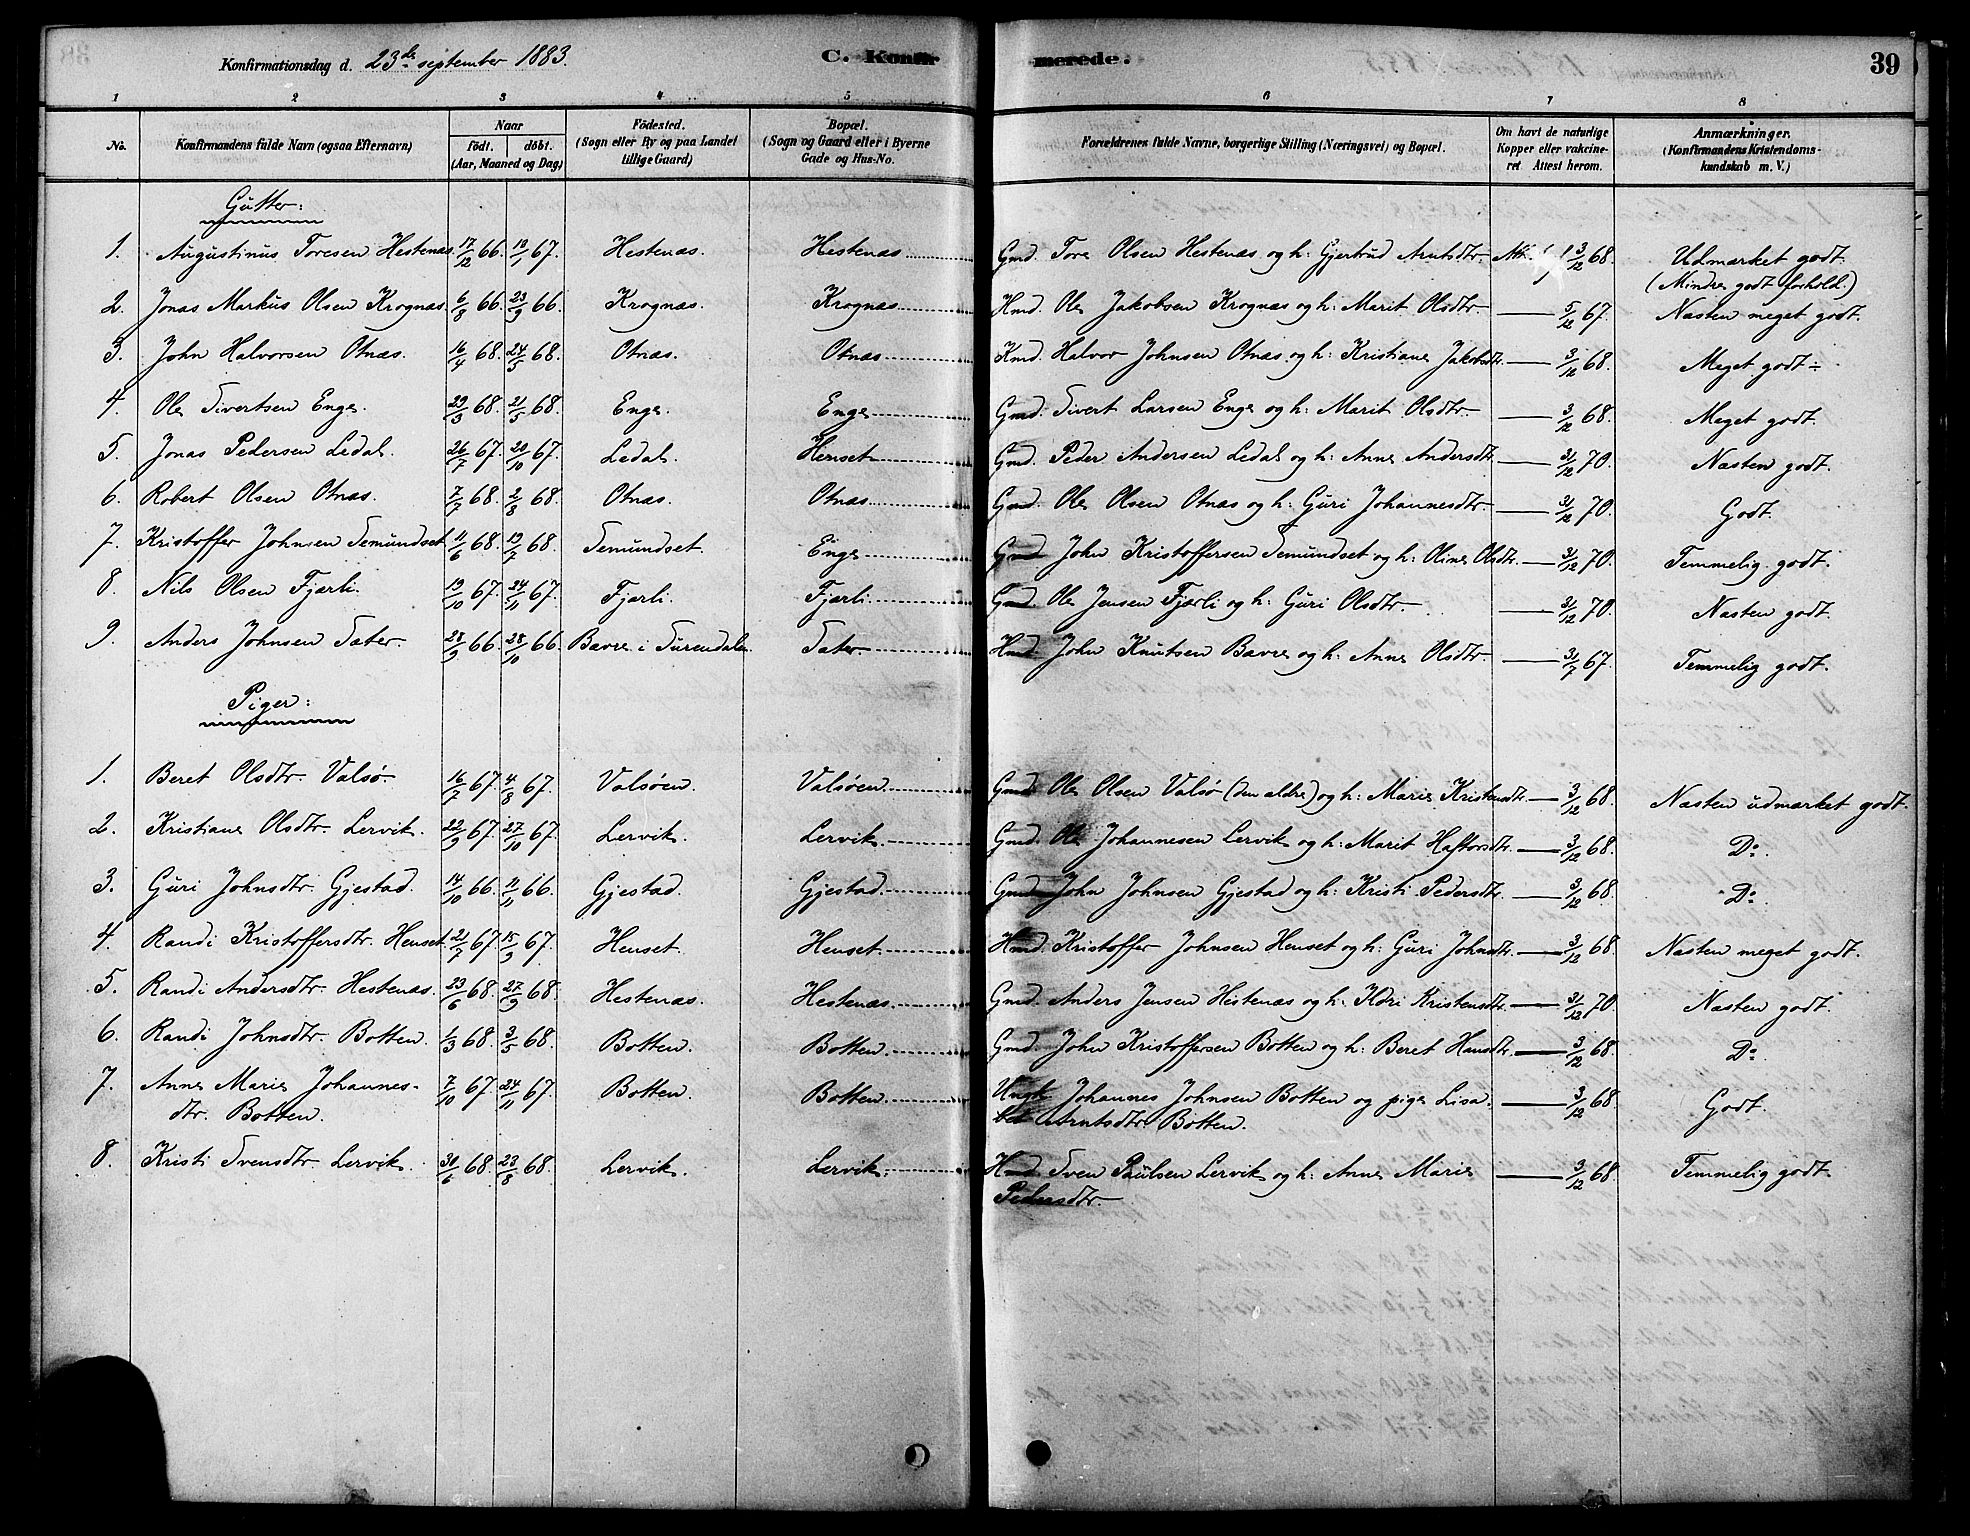 Konfirmationsdag d. 23de september 1883. C. Konfirmerede. 39
1 2 3 4 5 6 7 8
No. Konfirmandens fulde Navn (ogsaa Efternavn) Naar Födt. döbt. (Aar, Maaned og Dag) Födested. (Sogn eller By og paa Landet tillige Gaard) Bopæl. (Sogn og Gaard eller i Byerne Gade og Hus-No. Forældrenes fulde Navne, borgerlige Stilling (Næringsvei) og Bopæl. Om havt de naturlige Kopper eller vakcineret Attest herom. Anmærkninger. (Konfirmandens Kristendomskundskab m. V.)
Gutter:
1. Augustinus Toresen Hestenæs 17/12 66. 18/1 67. Hestenæs. Hestenæs Gmd. Tore Olsen Hestenæs og h: Gjertrud Arntsdtr. 3/12 68. Udmærket godt.
(Mindre godt forhold.)
2. Jonas Markus Olsen Krognæs. 6/8 66. 23/9 66. Krognæs. Krognæs Hmd. Ole Jakobsen Krognæs og h: Marit Olsdtr. — 5/12 67. Næsten meget godt.
3. John Halvorsen Otnæs. 16/4 68. 24/5 68. Otnæs. Otnæs Kmd. Halvor Johnsen Otnæs og h: Kristiane Jakobsdtr. — 3/12 68. Meget godt ÷
4. Ole Sivertsen Enge. 29/3 68. 21/5 68. Enge. Enge Gmd. Sivert Larsen Enge og h: Marit Olsdtr. — 3/12 68. Meget godt.
5. Jonas Pedersen Ledal. 26/7 67. 20/10 67. Ledal. Henset Gmd. Peder Andersen Ledal og h: Anne Andersdtr. — 31/12 70. Næsten godt.
6. Robert Olsen Otnæs. 7/7 68. 2/8 68. Otnæs. Otnæs Gmd. Ole Olsen Otnæs og h: Guri Johannesdtr. — 31/12 70. Godt.
7. Kristoffer Johnsen Semundset 11/6 68. 19/7 68. Semundset. Enge Gmd John Kristoffersen Semundset og h: Oline Olsdtr. — 31/12 70. Temmelig godt.
8. Nils Olsen Fjærli. 19/10 67. 24/11 67. Fjærli. Fjærli Gmd. Ole Jensen Fjærli og h: Guri Olsdtr. — 31/12 70. Næsten godt.
9. Anders Johnsen Sæter. 28/9 66. 28/10 66. Bævre i Surendalen. Sæter Hmd John Knutsen Bævre og h: Anne Olsdtr. — 31/7 67. Temmelig godt.
Piger:
1. Beret Olsdtr. Valsø. 16/7 67. 4/8 67. Valsøen. Valsøen Gmd. Ole Olsen Valsø (den ældre) og h: Marie Kristensdtr. — 3/12 68. Næsten udmærket godt.
2. Kristiane Olsdtr. Lervik. 22/9 67. 27/10 67. Lervik. Lervik. Gmd. Ole Johannesen Lervik og h: Marit Haftorsdtr. — 3/12 68. Do.
3. Guri Johnsdtr. Gjestad. 14/10 66. 11/11 66. Gjestad. Gjestad. Gmd John Johnsen Gjestad og h: Kristi Pedersdtr. — 3/12 68. Do.
4. Randi Kristoffersdtr. Henset. 21/7 67. 15/9 67. Henset. Henset. Hmd. Kristoffer Johnsen Henset og h: Guri Johnsdtr. — 3/12 68. Næsten meget godt.
5. Randi Andersdtr. Hestenæs. 23/6 68. 27/9 68. Hestenæs. Hestenæs. Gmd. Anders Jensen Hestenæs og h: Ildri Kristensdtr. — 31/12 70. Næsten godt.
6. Randi Johnsdtr. Botten. 1/3 68. 3/5 68. Botten. Botten. Gmd. John Kristoffersen Botten og h: Beret Hansdtr. — 3/12 68. Do.
7. Anne Marie Johannes- 7/10 67. 24/11 67. Botten. Botten. Ungk. Johannes Johnsen Botten og pige Lisa- — 3/12 68. Godt.
dtr. Botten. bet Arntsdtr. Botten.
8. Kristi Svensdtr. Lervik. 30/6 68. 23/8 68. Lervik. Lervik. Hmd Sven Paulsen Lervik og h: Anne Marie — 3/12 68. Temmelig godt.
Pedersdtr.